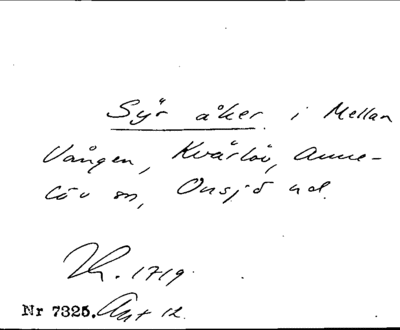 Syr åker i Mellan
Vången, Kvärlöv, Anne-
löv sn, Onsjö hd.
Kh. 1719.
Nr 7325. Ant 12.